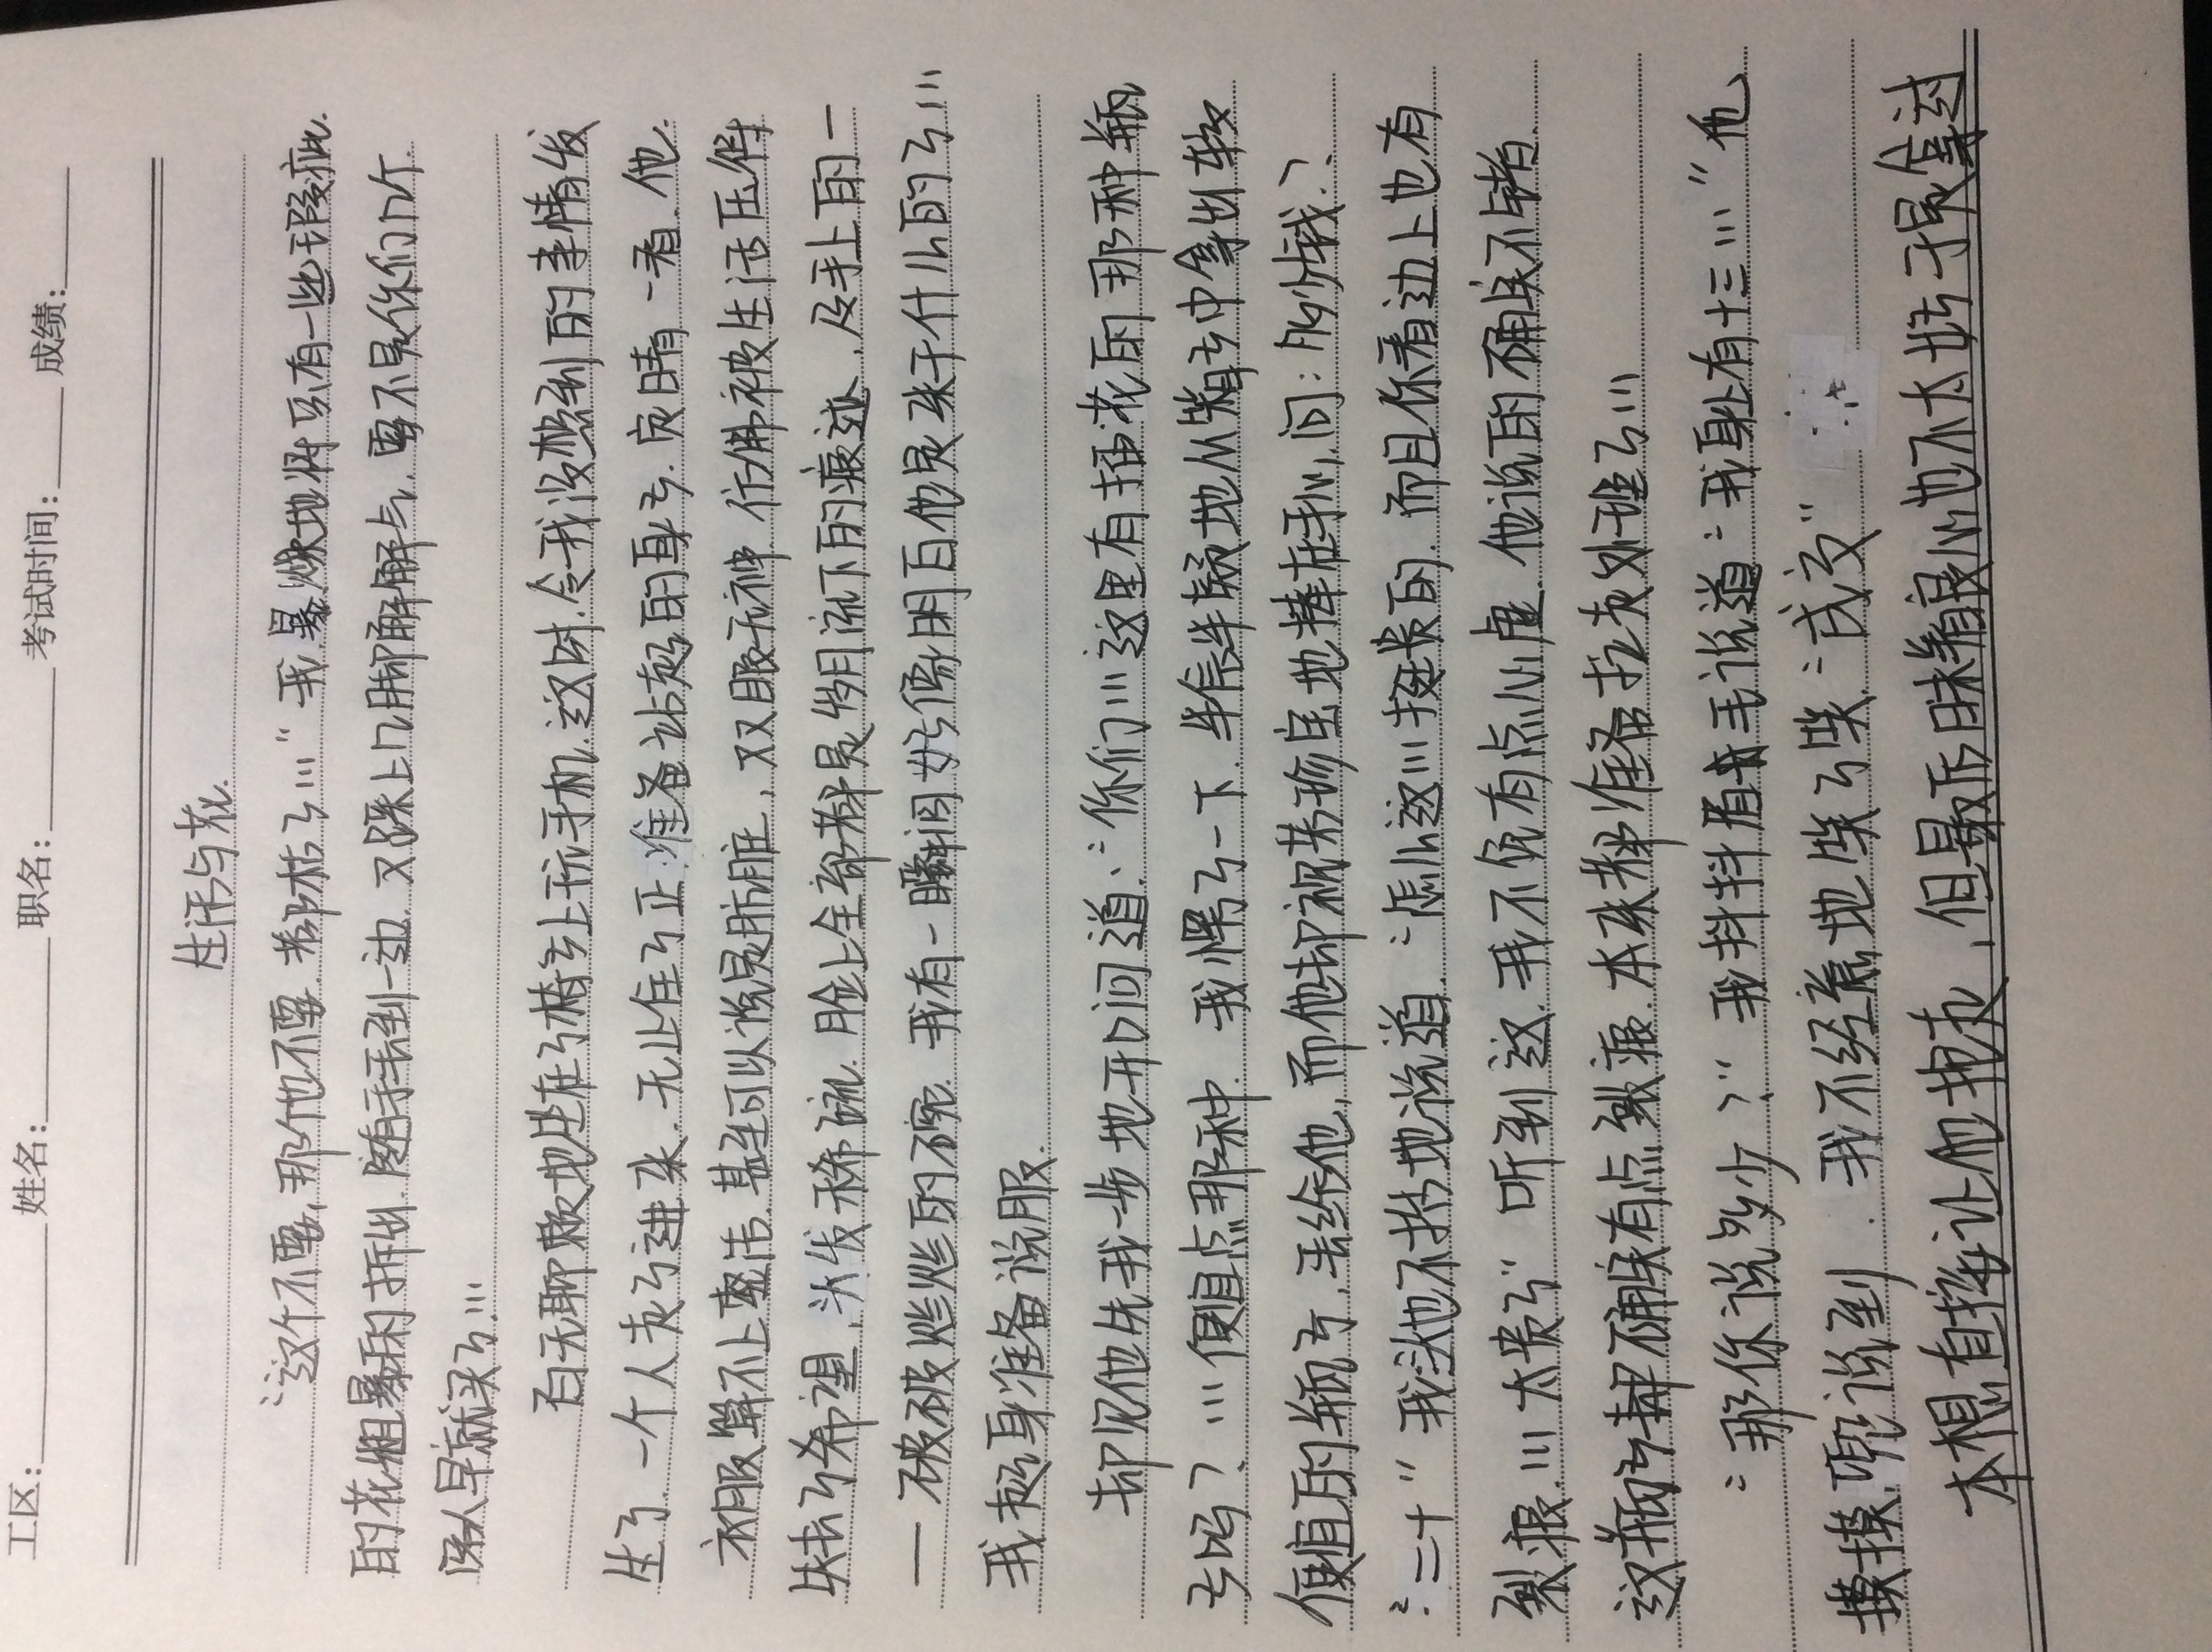 工区: 姓名: 职名: 考试时间: 成绩:
生活与花.
“这个不要,那个他不要.都枯了…”我暴燥地将只有一些瑕疵.
的花粗暴的拆出.随手丢到一边.又踩上几脚解解气.要不是你们几个
客人早就买了…
百无聊赖地坐在了椅子上玩手机.这时.令我没想到的事情发
生了.一个人走了进来.无止住了正准备站起的身子.定睛一看.他.
衣服算不上整洁.甚至可以说是肮脏,双眼无神.仿佛被生活压得
失去了希望,头发稀疏.脸上全都是岁月流下的痕迹.及手上的一
一破破烂烂的碗.我有一瞬间好像明白他是来干什么的了…
我起身准备说服.
却见他先我一步地开口问道:“你们…这里有插花的那种瓶
子吗?…便宜点那种.我愣了一下.半信半疑地从箱子中拿出较
便宜的瓶子,丢给他,而他却视若珍宝地捧在手心,问:多少钱.?
“二十”我头也不抬地说道.“怎么这…挺贵的.而且你看边上也有
裂痕.…太贵了”听到这.我不免有点心虚.他说的确实不错.
这瓶子确实有点裂痕.本来都准备扣友外班了…
“那你说多少?”我抖抖眉毛说道“我身上有十三…”他
摸摸兜说到.我不经意地笑了笑“成交”
本想直接让他抱走,但最后昧着良心也不太好于是拿过